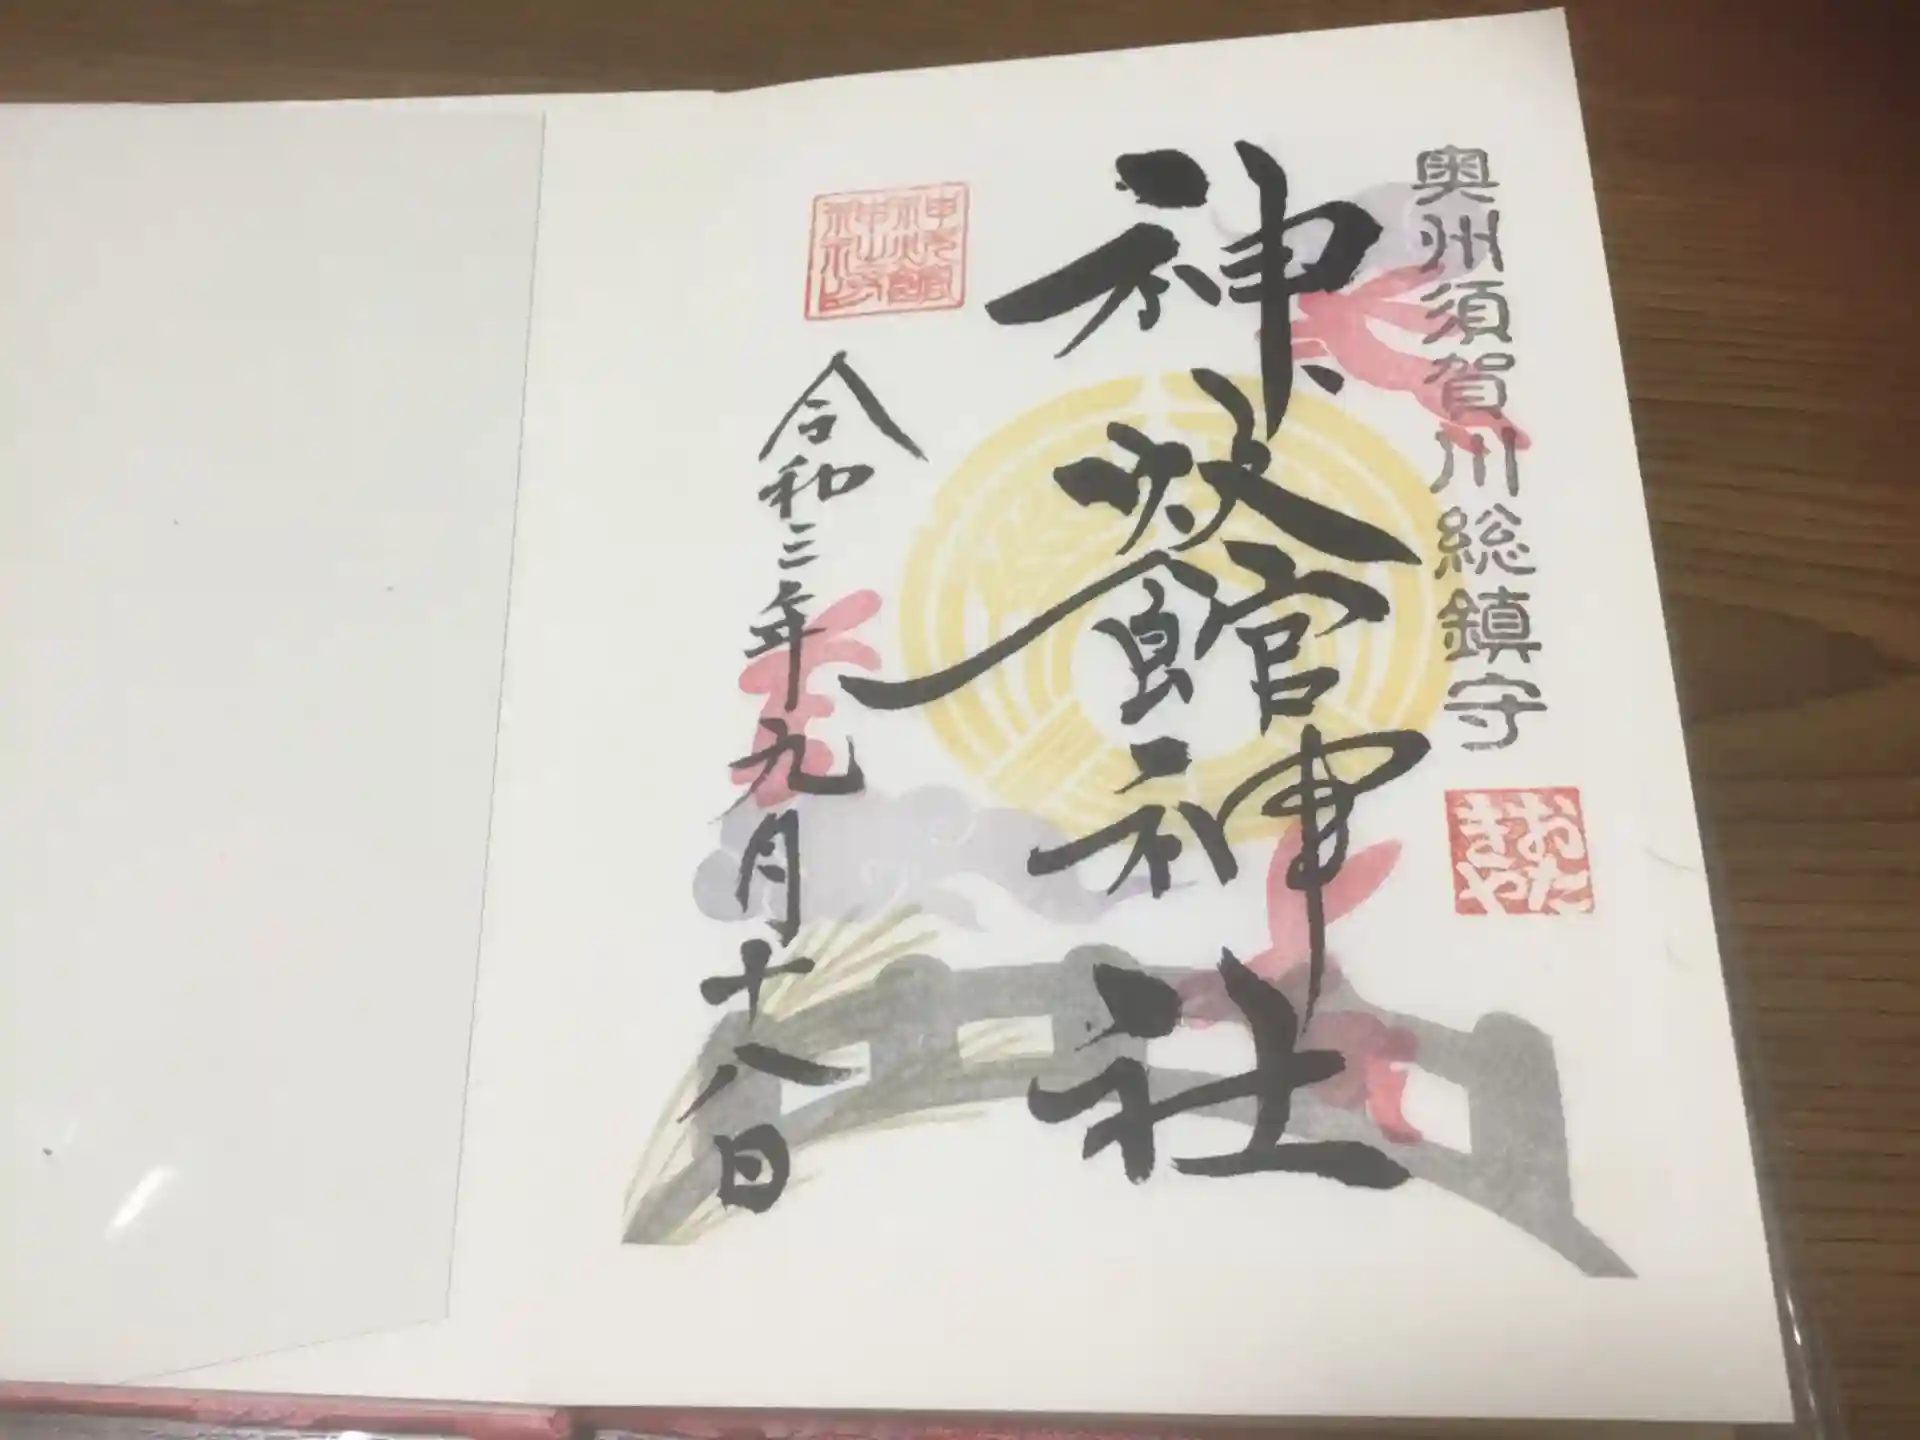 奥州須賀川総鎮守
おたきや
神炊館神社
神炊館
神社
令和三年九月十八日